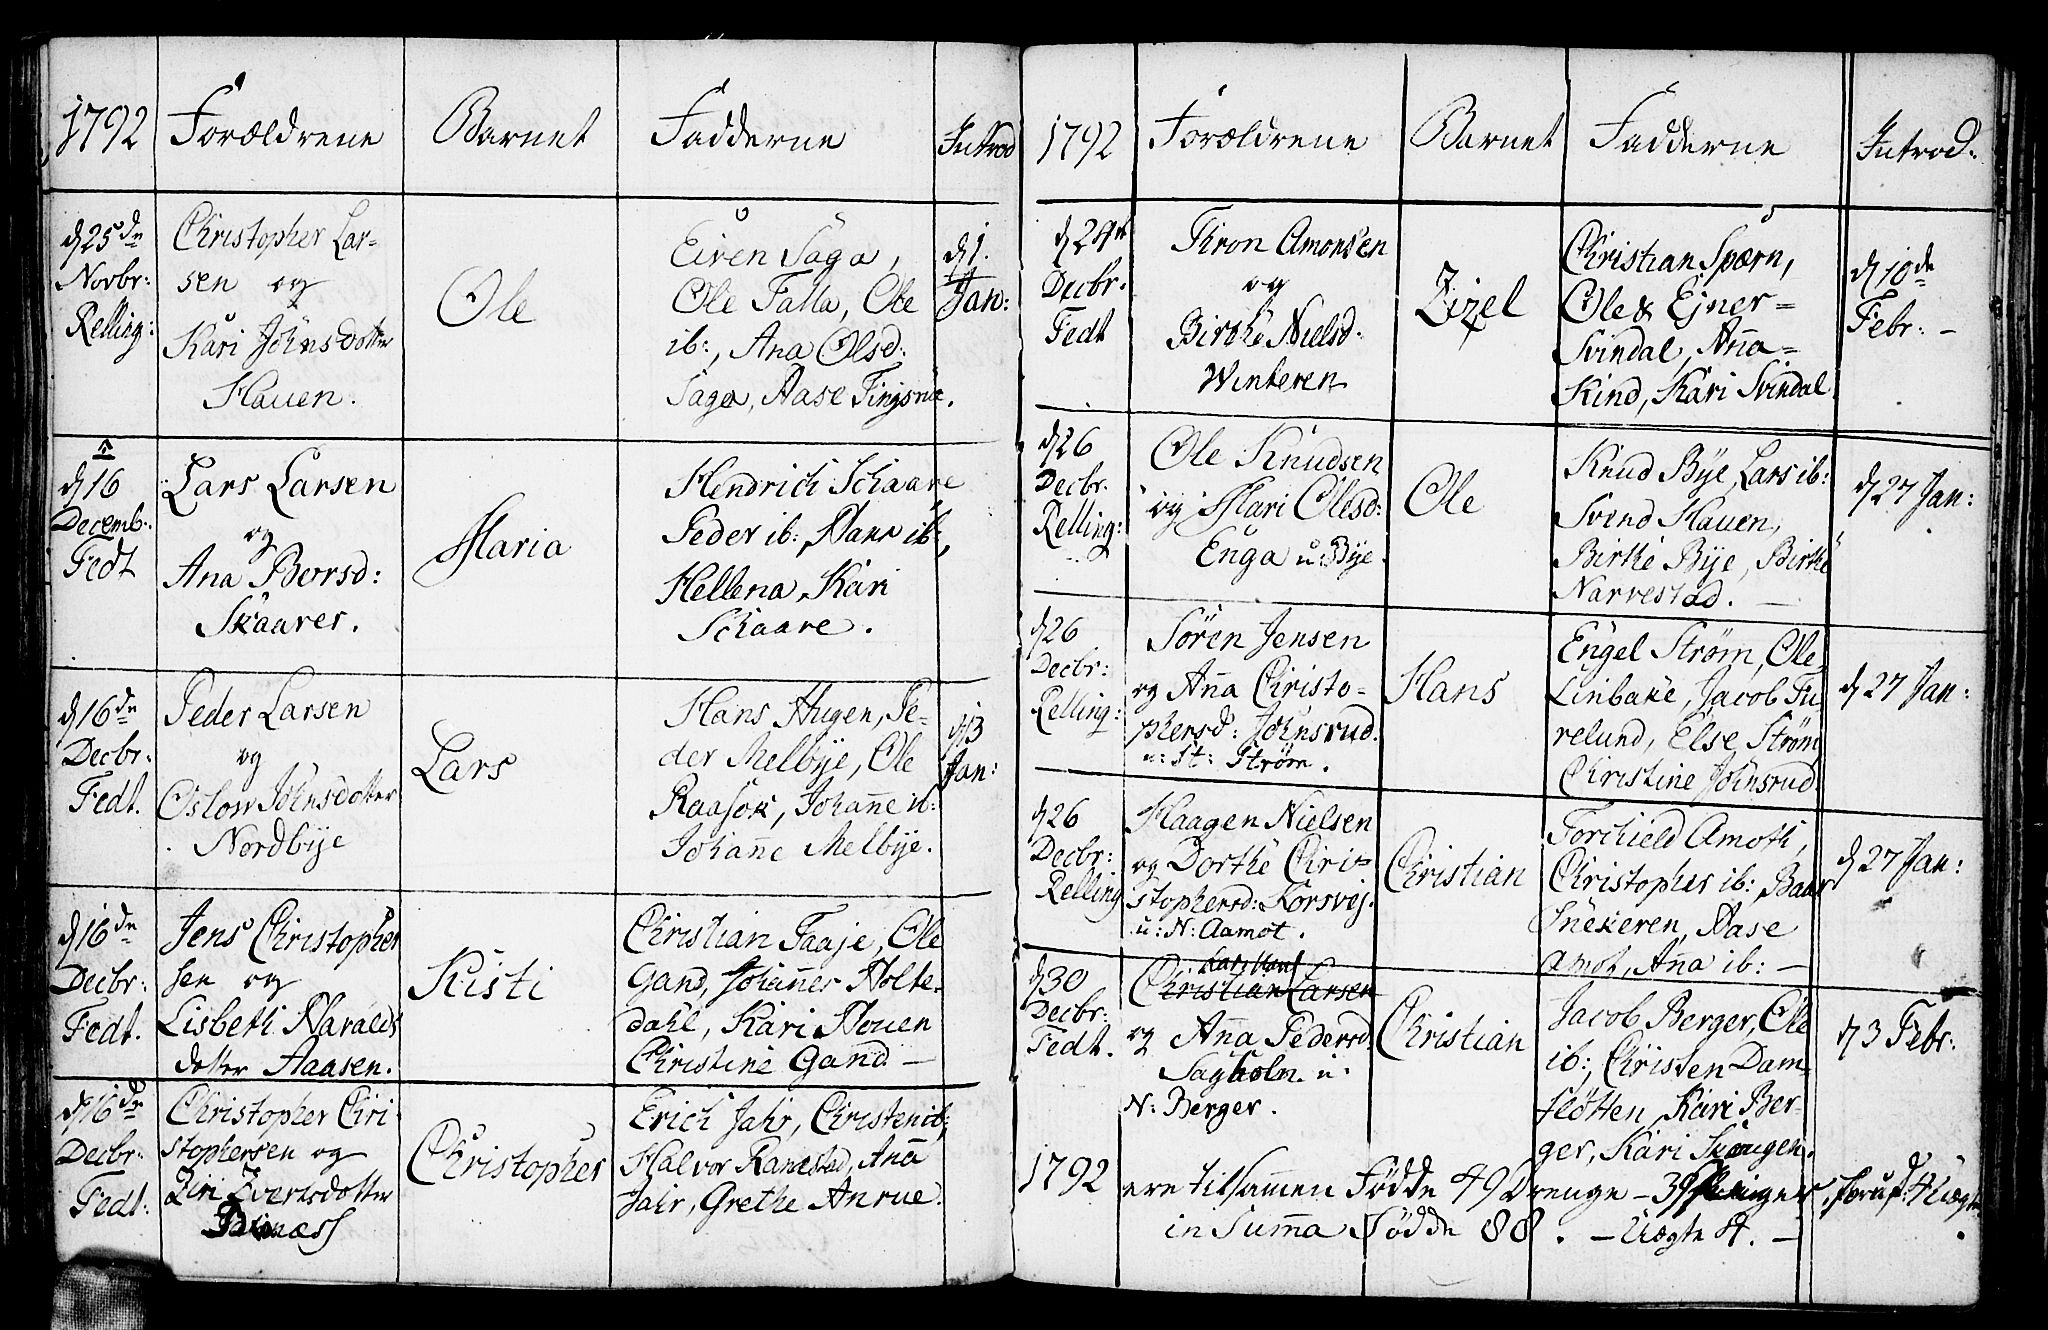 1792 Forældrene Barnet Fadderne Introd
d 25de Novbr: Relling:
Christopher Lar-
sen og
Kari Johnsdotter
Hauen.
Ole
Eiven Saga,
Ole Falla, Ole
ib:, Ana Olsd:
Saga, Aase Tingsnæ.
d 1. Jan:
d 16 Decemb: Fedt
Lars Larsen
og
Ana Borsd:
Skaarer.
Maria
Hendrich Schaare
Peder ib: Hans ib:,
Hellena, Kari
Schaare.
d 16de Decbr: Fedt.
Peder Larsen
og
Oslow Johnsdotter
Nordbye
Lars
Hans Hugen, Pe-
der Melbye, Ole
Raasok, Johanne ib:
Johanne Melbye.
d 13 Jan:
d 16de Decbr: Fedt.
Jens Christopher
sen og
Lisbeth Haralds
dotter Aaasen.
Kisti
Christian Faaje, Ole
Gand, Johannes Holte-
dahl, Kari Houen
Christine Gand —
d 16de Decbr: Fedt:
Christopher Chri
stophersen og
Ziri Evertsdotter
Christopher
Erich Jahr, Christen ib;
Halvor Ramstad, Anna
Jahr, Grethe Anrue.
1792 Forældrene Barnet Fadderne Introd:
d 24de Decbr. Fedt
Thron Amonsen
og
Birthe Nielsd:
Winteren
Zizel
Christian Spærn,
Ole & Ejner-
Svindal, Anna-
Kind, Kari Svindal
d 10de Febr: —
d 26 Decbr. Relling:
Ole Knudsen
og Mari Olesd:
Enga u: Bye.
Ole
Knud Bye, Lars ib:
Svend Hauen,
Birthe Bye, Birthe
Narvestad. —
d 27 Jan:
d 26 Decbr: Relling:
Sören Jensen
og Anna Christo-
phersd: Johnsrud
u: st: Strøm.
Hans
Engel Strøm, Ole
Linbake, Jacob Fu
relund, Else Strøm
Christine Johnsrud
d 27 Jan:
d 26 Decbr: Relling
Haagen Nielsen
og Dorthe Chri-
stophersd: Korsvej.
u: N: Aamot.
Christian
Torchield Amoth,
Christopher ib: Baar
Snekeren, Aase
Amot, Anna ib: —
d 27 Jan:
d 30 Decbr: Fedt.
Lars Hans
Christian Larsen
og Anna Pedersd
Sagholn. u:
N: Berger.
Christian
Jacob Berger, Ole
ib:, Christen Dam
fløtten, Kari Ber-
ger, Kari Skougen.
d 3 Febr:
1792 ere tilsamen Fødde 49 Drenge — 39 Piger
in Summa Fødde 88. — Uægte 4. —